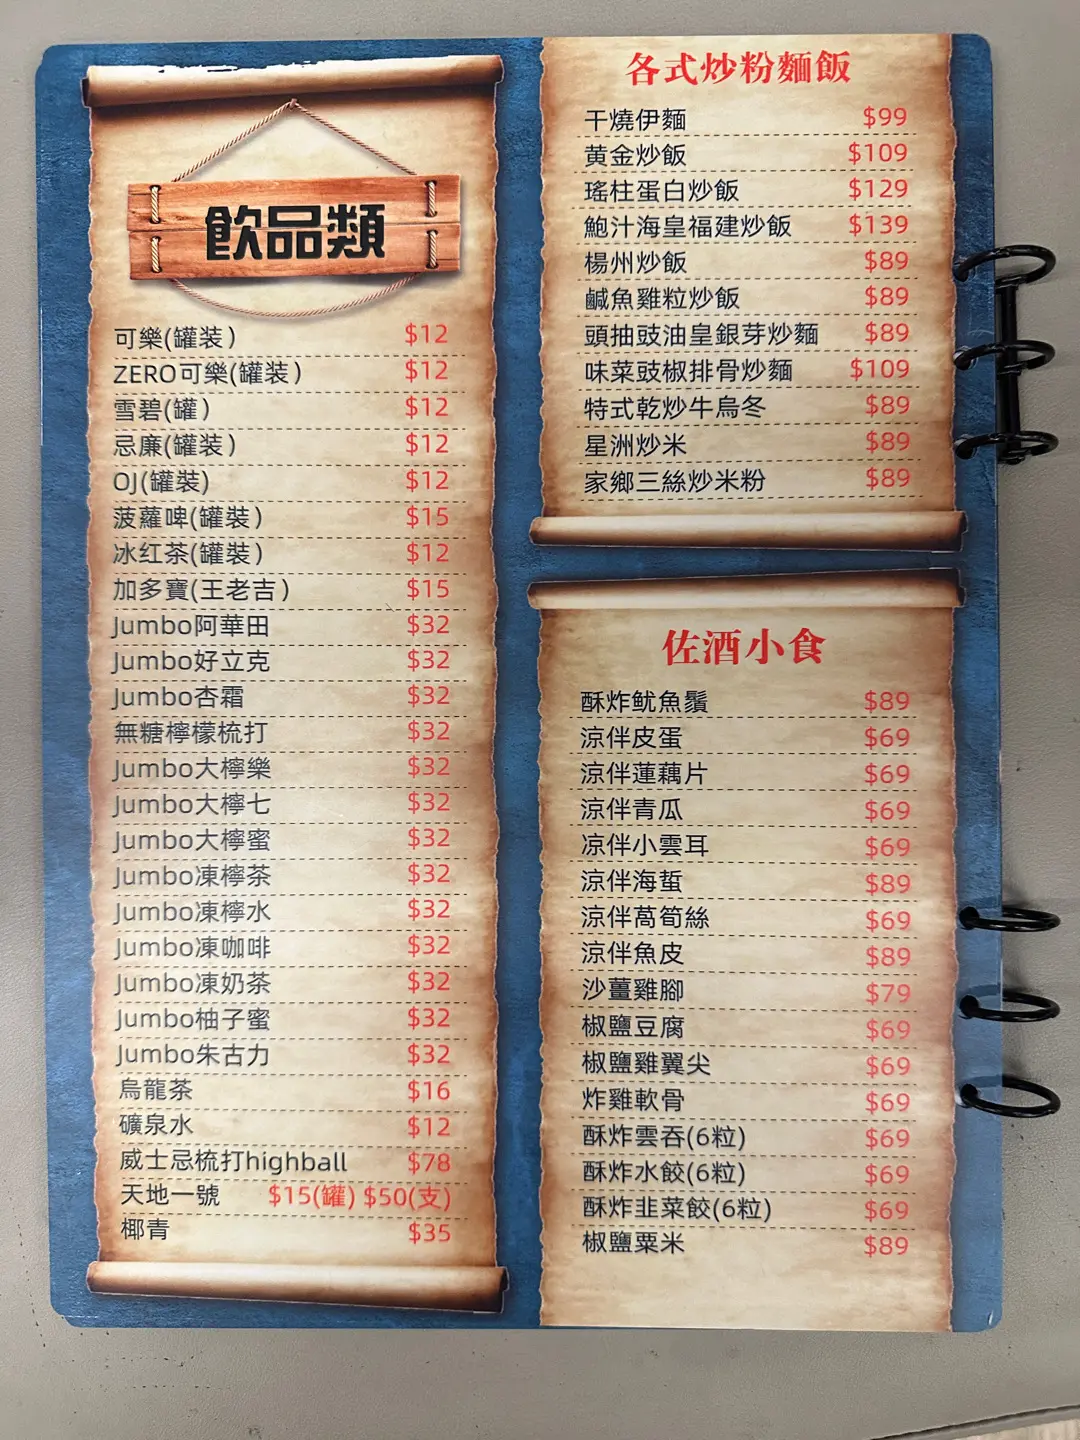 飲品類
可樂(罐装) $12
ZERO可樂(罐装) $12
雪碧(罐) $12
忌廉(罐装) $12
OJ(罐裝) $12
菠蘿啤(罐裝) $15
冰红茶(罐裝) $12
加多寶(王老吉) $15
Jumbo阿華田 $32
Jumbo好立克 $32
Jumbo杏霜 $32
無糖檸檬梳打 $32
Jumbo大檸樂 $32
Jumbo大檸七 $32
Jumbo大檸蜜 $32
Jumbo凍檸茶 $32
Jumbo凍檸水 $32
Jumbo凍咖啡 $32
Jumbo凍奶茶 $32
Jumbo柚子蜜 $32
Jumbo朱古力 $32
烏龍茶 $16
礦泉水 $12
威士忌梳打highball $78
天地一號 $15(罐) $50(支)
椰青 $35
各式炒粉麵飯
干燒伊麵 $99
黄金炒飯 $109
瑤柱蛋白炒飯 $129
鮑汁海皇福建炒飯 $139
楊州炒飯 $89
鹹魚雞粒炒飯 $89
頭抽豉油皇銀芽炒麵 $89
味菜豉椒排骨炒麵 $109
特式乾炒牛烏冬 $89
星洲炒米 $89
家鄉三絲炒米粉 $89
佐酒小食
酥炸鱿魚鬚 $89
涼伴皮蛋 $69
涼伴蓮藕片 $69
涼伴青瓜 $69
凉伴小雲耳 $69
涼伴海蜇 $89
涼伴萵筍絲 $69
涼伴魚皮 $89
沙薑雞腳 $79
椒鹽豆腐 $69
椒鹽雞翼尖 $69
炸雞軟骨 $69
酥炸雲吞(6粒) $69
酥炸水餃(6粒) $69
酥炸韭菜餃(6粒) $69
椒鹽粟米 $89